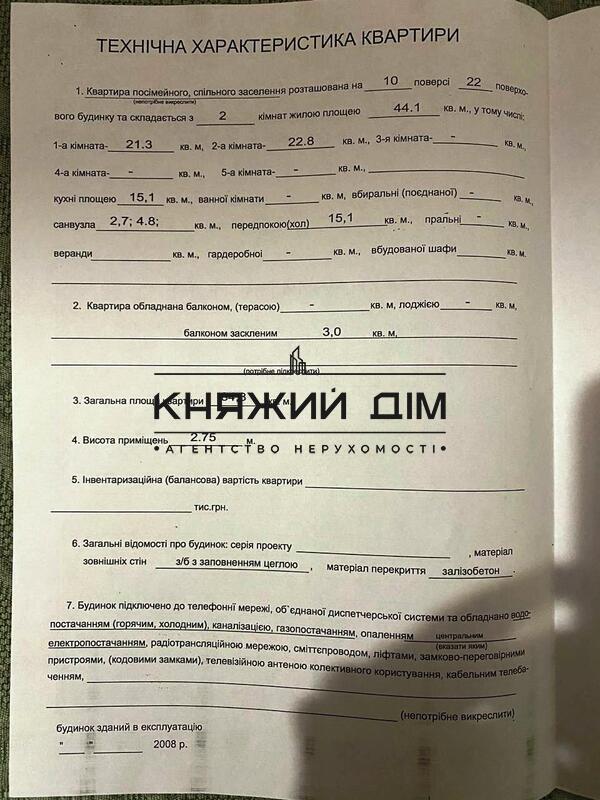 ТЕХНІЧНА ХАРАКТЕРИСТИКА КВАРТИРИ
1. Квартира посімейного, спільного заселення розташована на 10 поверсі 22 поверхо-
(непотрібне викреслити)
вого будинку та складається з 2 кімнат жилою площею 44.1 кв. м., у тому числі:
1-а кімната- 21.3 кв. м, 2-а кімната- 22.8 кв. м., 3-я кімната- - кв. м.,
4-а кімната- - кв. м., 5-а кімната- - кв. м.,
кухні площею 15,1 кв. м., ванної кімнати - кв. м, вбиральні (поєднаної) - кв. м.,
санвузла 2,7; 4.8; кв. м., передпокою(хол) 15,1 кв. м., пральні - кв. м.,
веранди кв. м., гардеробної - кв. м., вбудованої шафи кв. м.
2. Квартира обладнана балконом, (терасою) - кв. м, лоджією - кв. м,
балконом заскленим 3,0 кв. м,
(потрібне підкреслити)
3. Загальна площа квартири кв. м.
КНЯЖИЙ ДІМ
4. Висота приміщень 2.75 м.
•АГЕНТСТВО НЕРУХОМОСТІ•
5. Інвентаризаційна (балансова) вартість квартири
тис.грн.
6. Загальні відомості про будинок: серія проекту , матеріал
зовнішніх стін з/б з заповненням цеглою , матеріал перекриття залізобетон .
7. Будинок підключено до телефонні мережі, об'єднаної диспетчерської системи та обладнано водо-
постачанням (горячим, холодним), каналізацією, газопостачанням, опаленням центральним
(вказати яким)
електропостачанням, радіотрансляційною мережою, сміттєпроводом, ліфтами, замково-переговорними
пристроями, (кодовими замками), телевізійною антеною колективного користування, кабельним телеба-
ченням,
(непотрібне викреслити)
будинок зданий в експлуатацію
" " 2008 р.